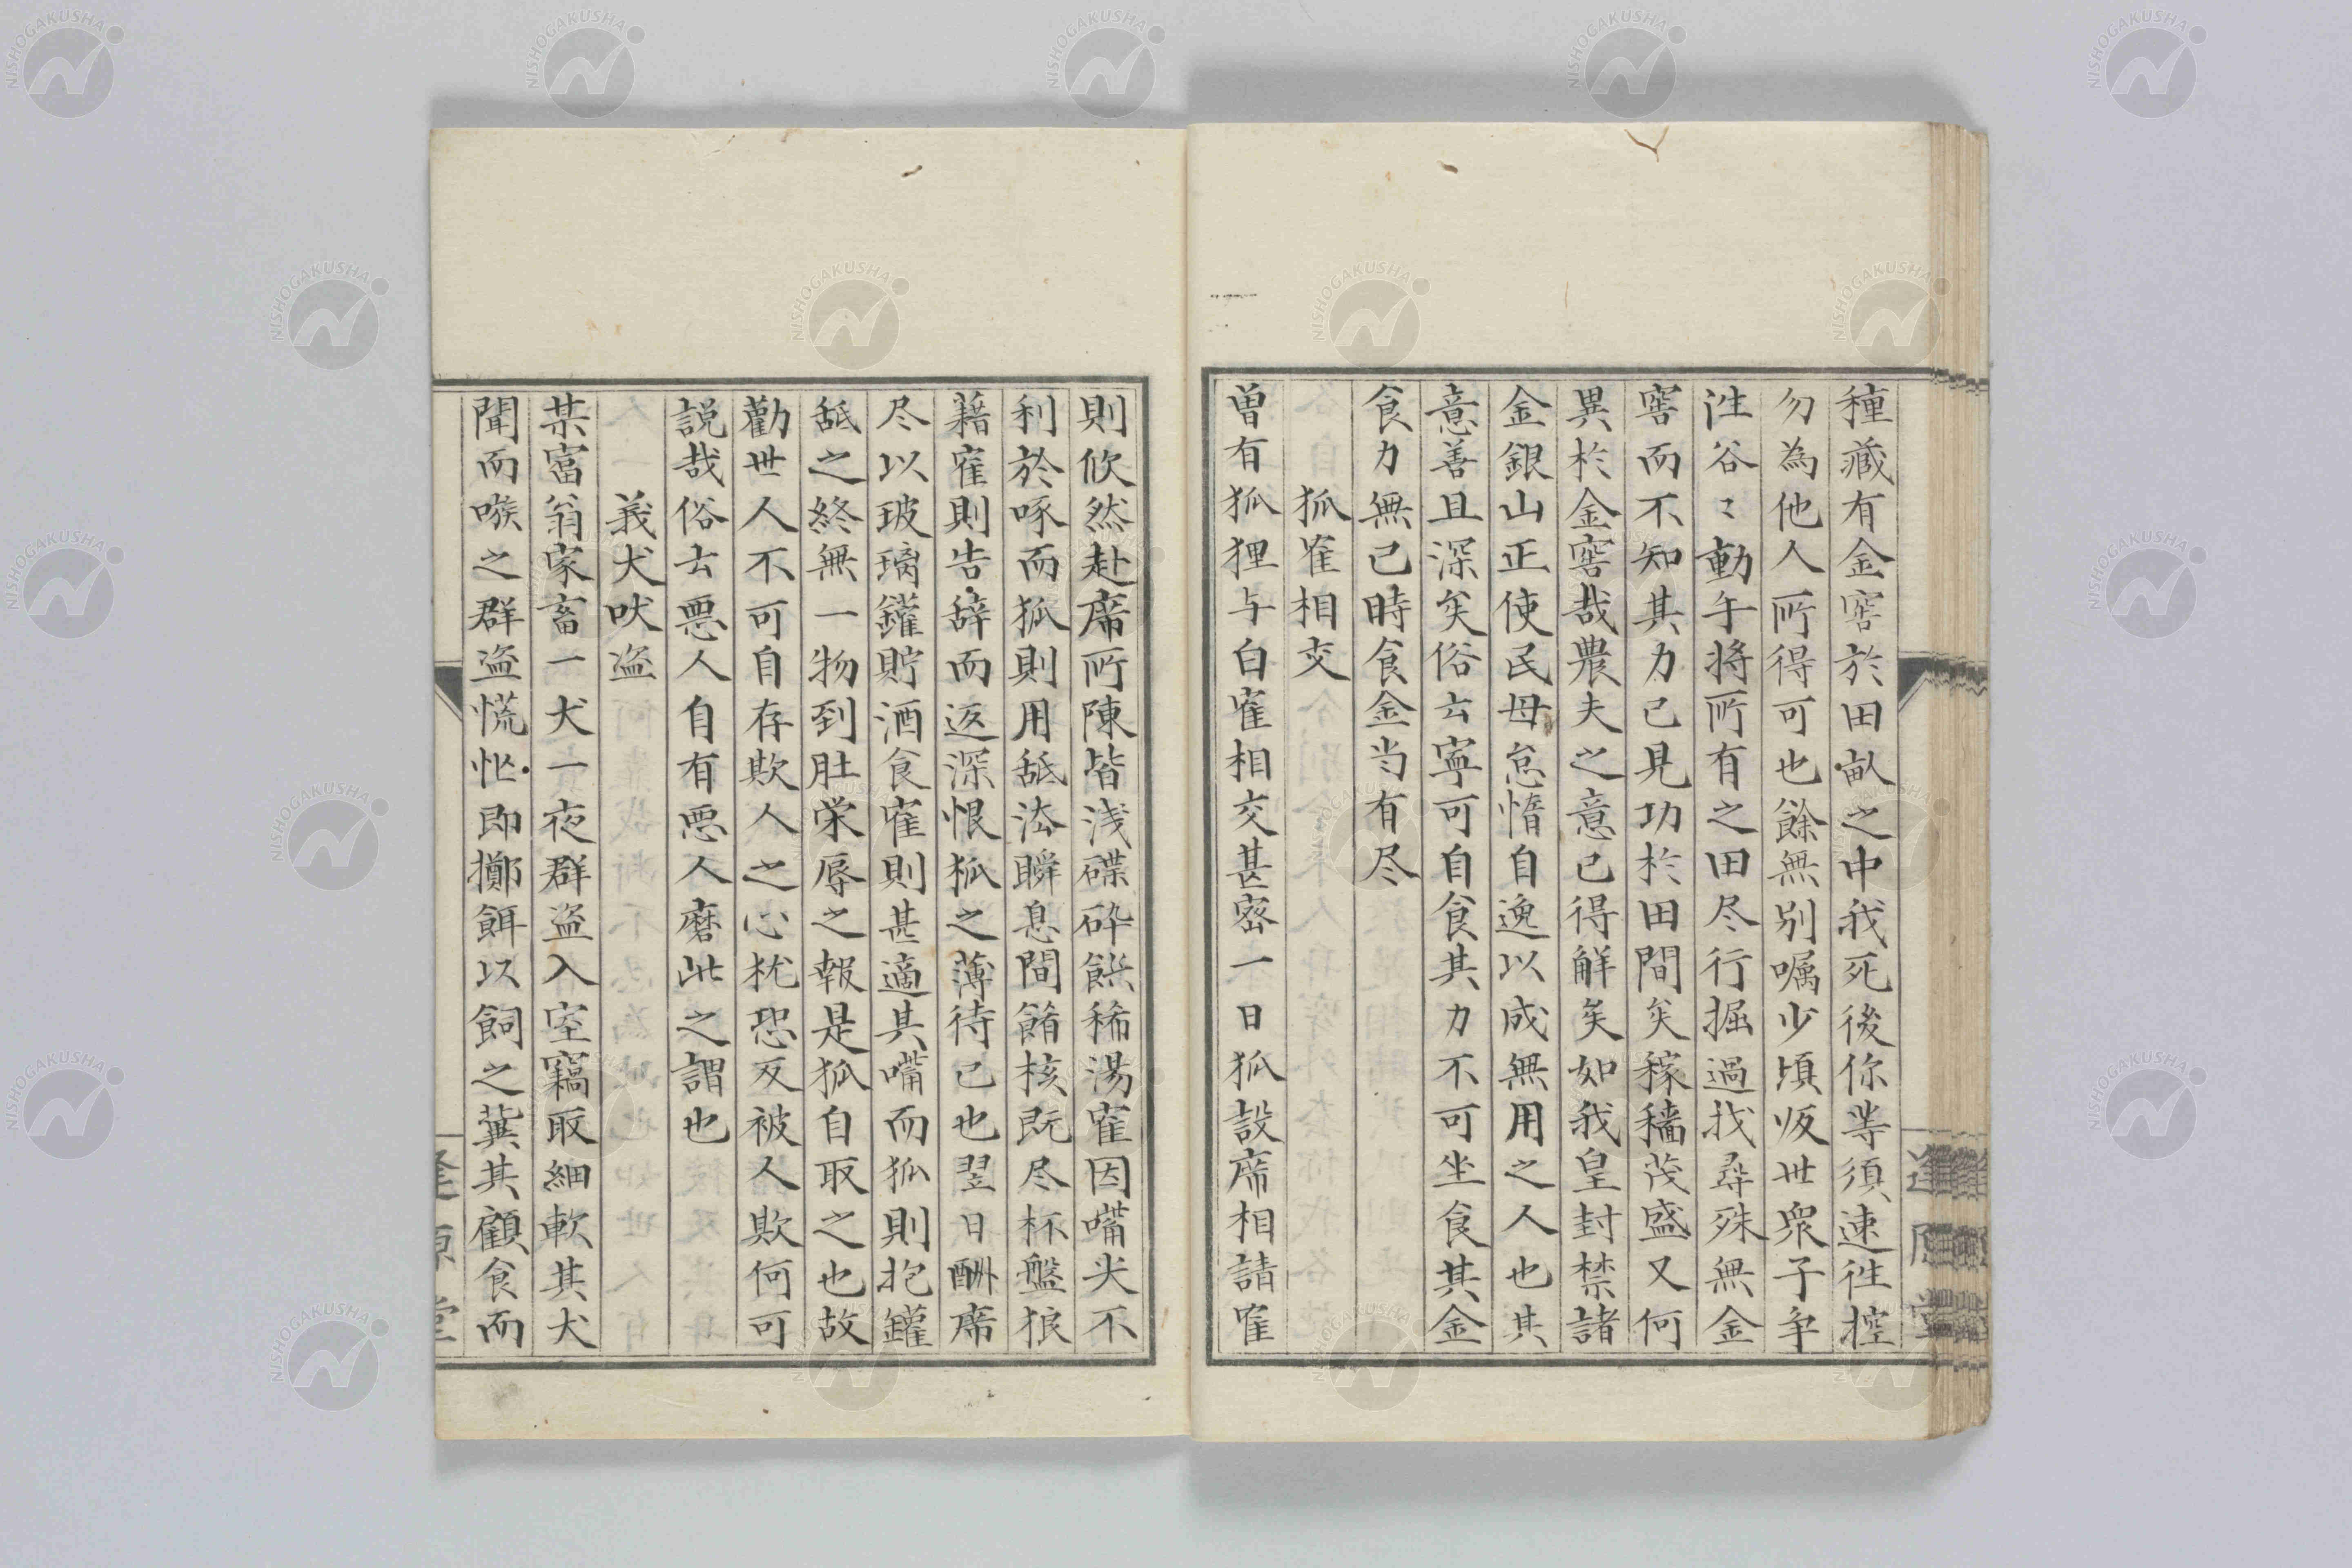 種藏有金窖於田畝之中我死後你等須速徃控
勿為他人所得可也餘無別嘱少頃皈世衆子争
徃谷〻動手将所有之田尽行掘過找尋殊無金
窖而不知其力已見功於田間矣稼穡茂盛又何
異於金窖哉農夫之意已得觧矣如我皇封禁諸
金銀山正使民毋怠惰自逸以成無用之人也其
意善且深矣俗云寧可自食其力不可坐食其金
食力無己時食金当有尽
狐隺相交
曽有狐狸与白寉相交甚宻一日狐設席相請寉
則欣然赴席所陳皆浅碟碎餁稀湯寉因嘴尖不
利於啄而狐則用舐法瞬息間餚核既尽杯盤狼
藉寉則告辞而返深恨狐之薄待己也翌日酬席
尽以玻璃鑵貯酒食寉則甚適其嘴而狐則抱鑵
舐之終無一物到肚栄辱之報是狐自取之也故
勸世人不可自存欺人之心枕恐反被人欺何可
説哉俗云悪人自有悪人磨此之謂也
義犬吠盗
某富翁家畜一犬一夜群盗入室竊取細軟其犬
聞而嗾之群盗慌怭即擲餌以飼之冀其顧食而
逢原堂
逢原堂
NISHOGAKUSHA